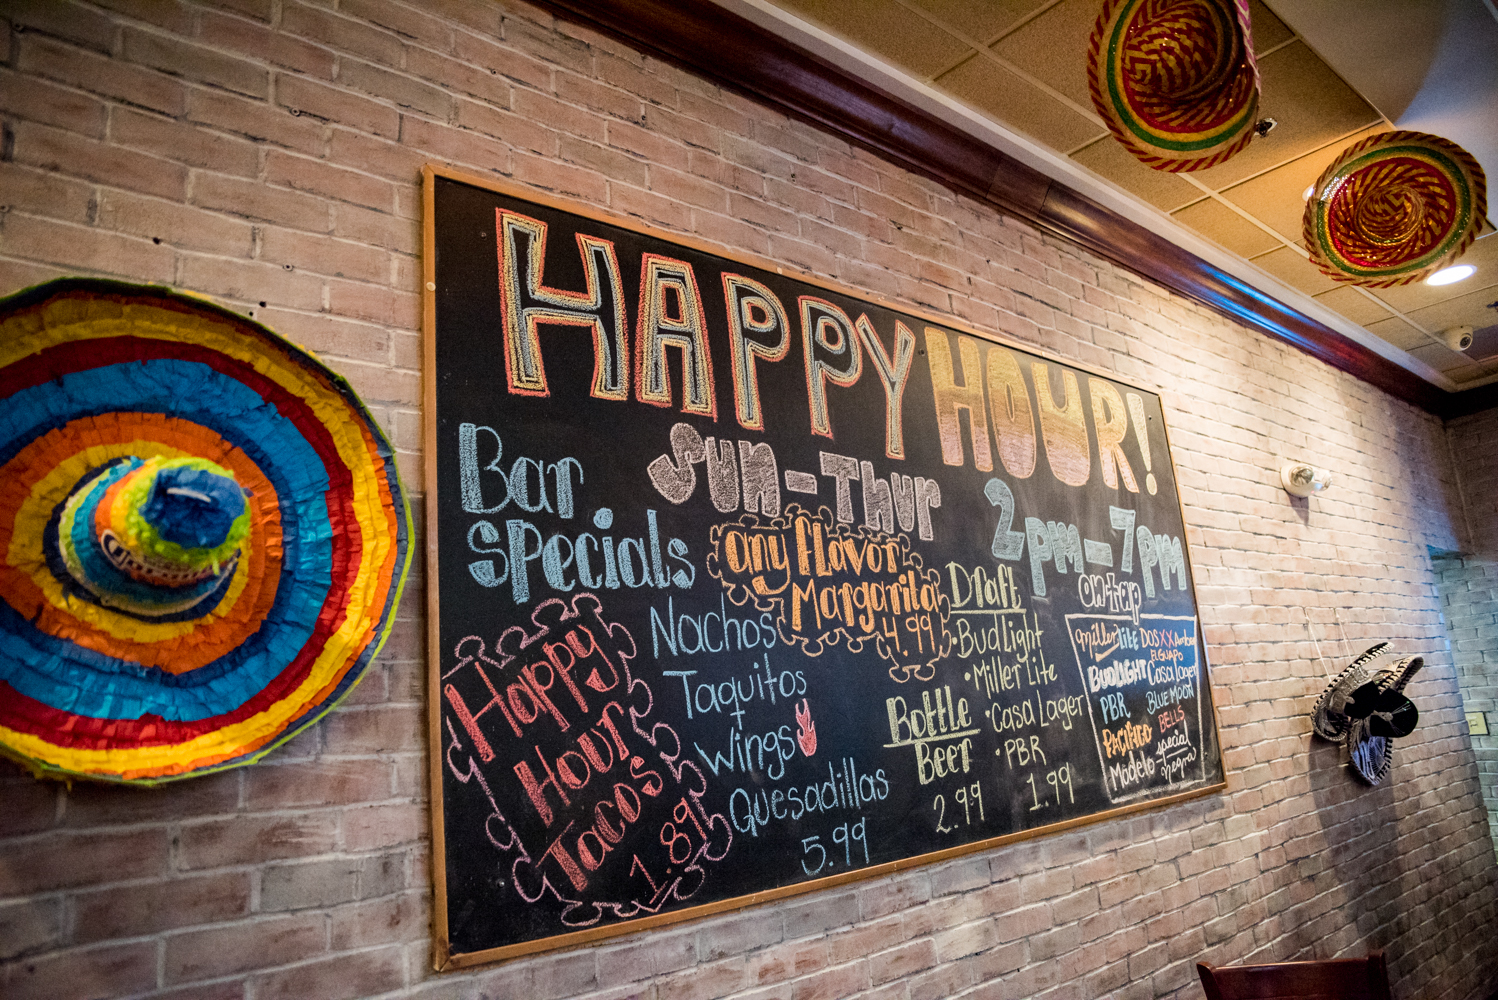 HAPPY HOUR!
Sun-Thur
2pm-7pm
Bar
specials
any flavor
Margarita
4.99
Happy
Hour
Tacos
1.89
Nachos
Taquitos
Wings
Quesadillas
5.99
Bottle
Beer
2.99
Draft
•Bud Light
•Miller Lite
•Casa Lager
•PBR
1.99
on tap
Miller lite
BUDLIGHT
PBR
PACIFICO
Modelo-special
negra
DOS XX Amber
EL GUAPO
Casa Lager
BLUE MOON
BELLS